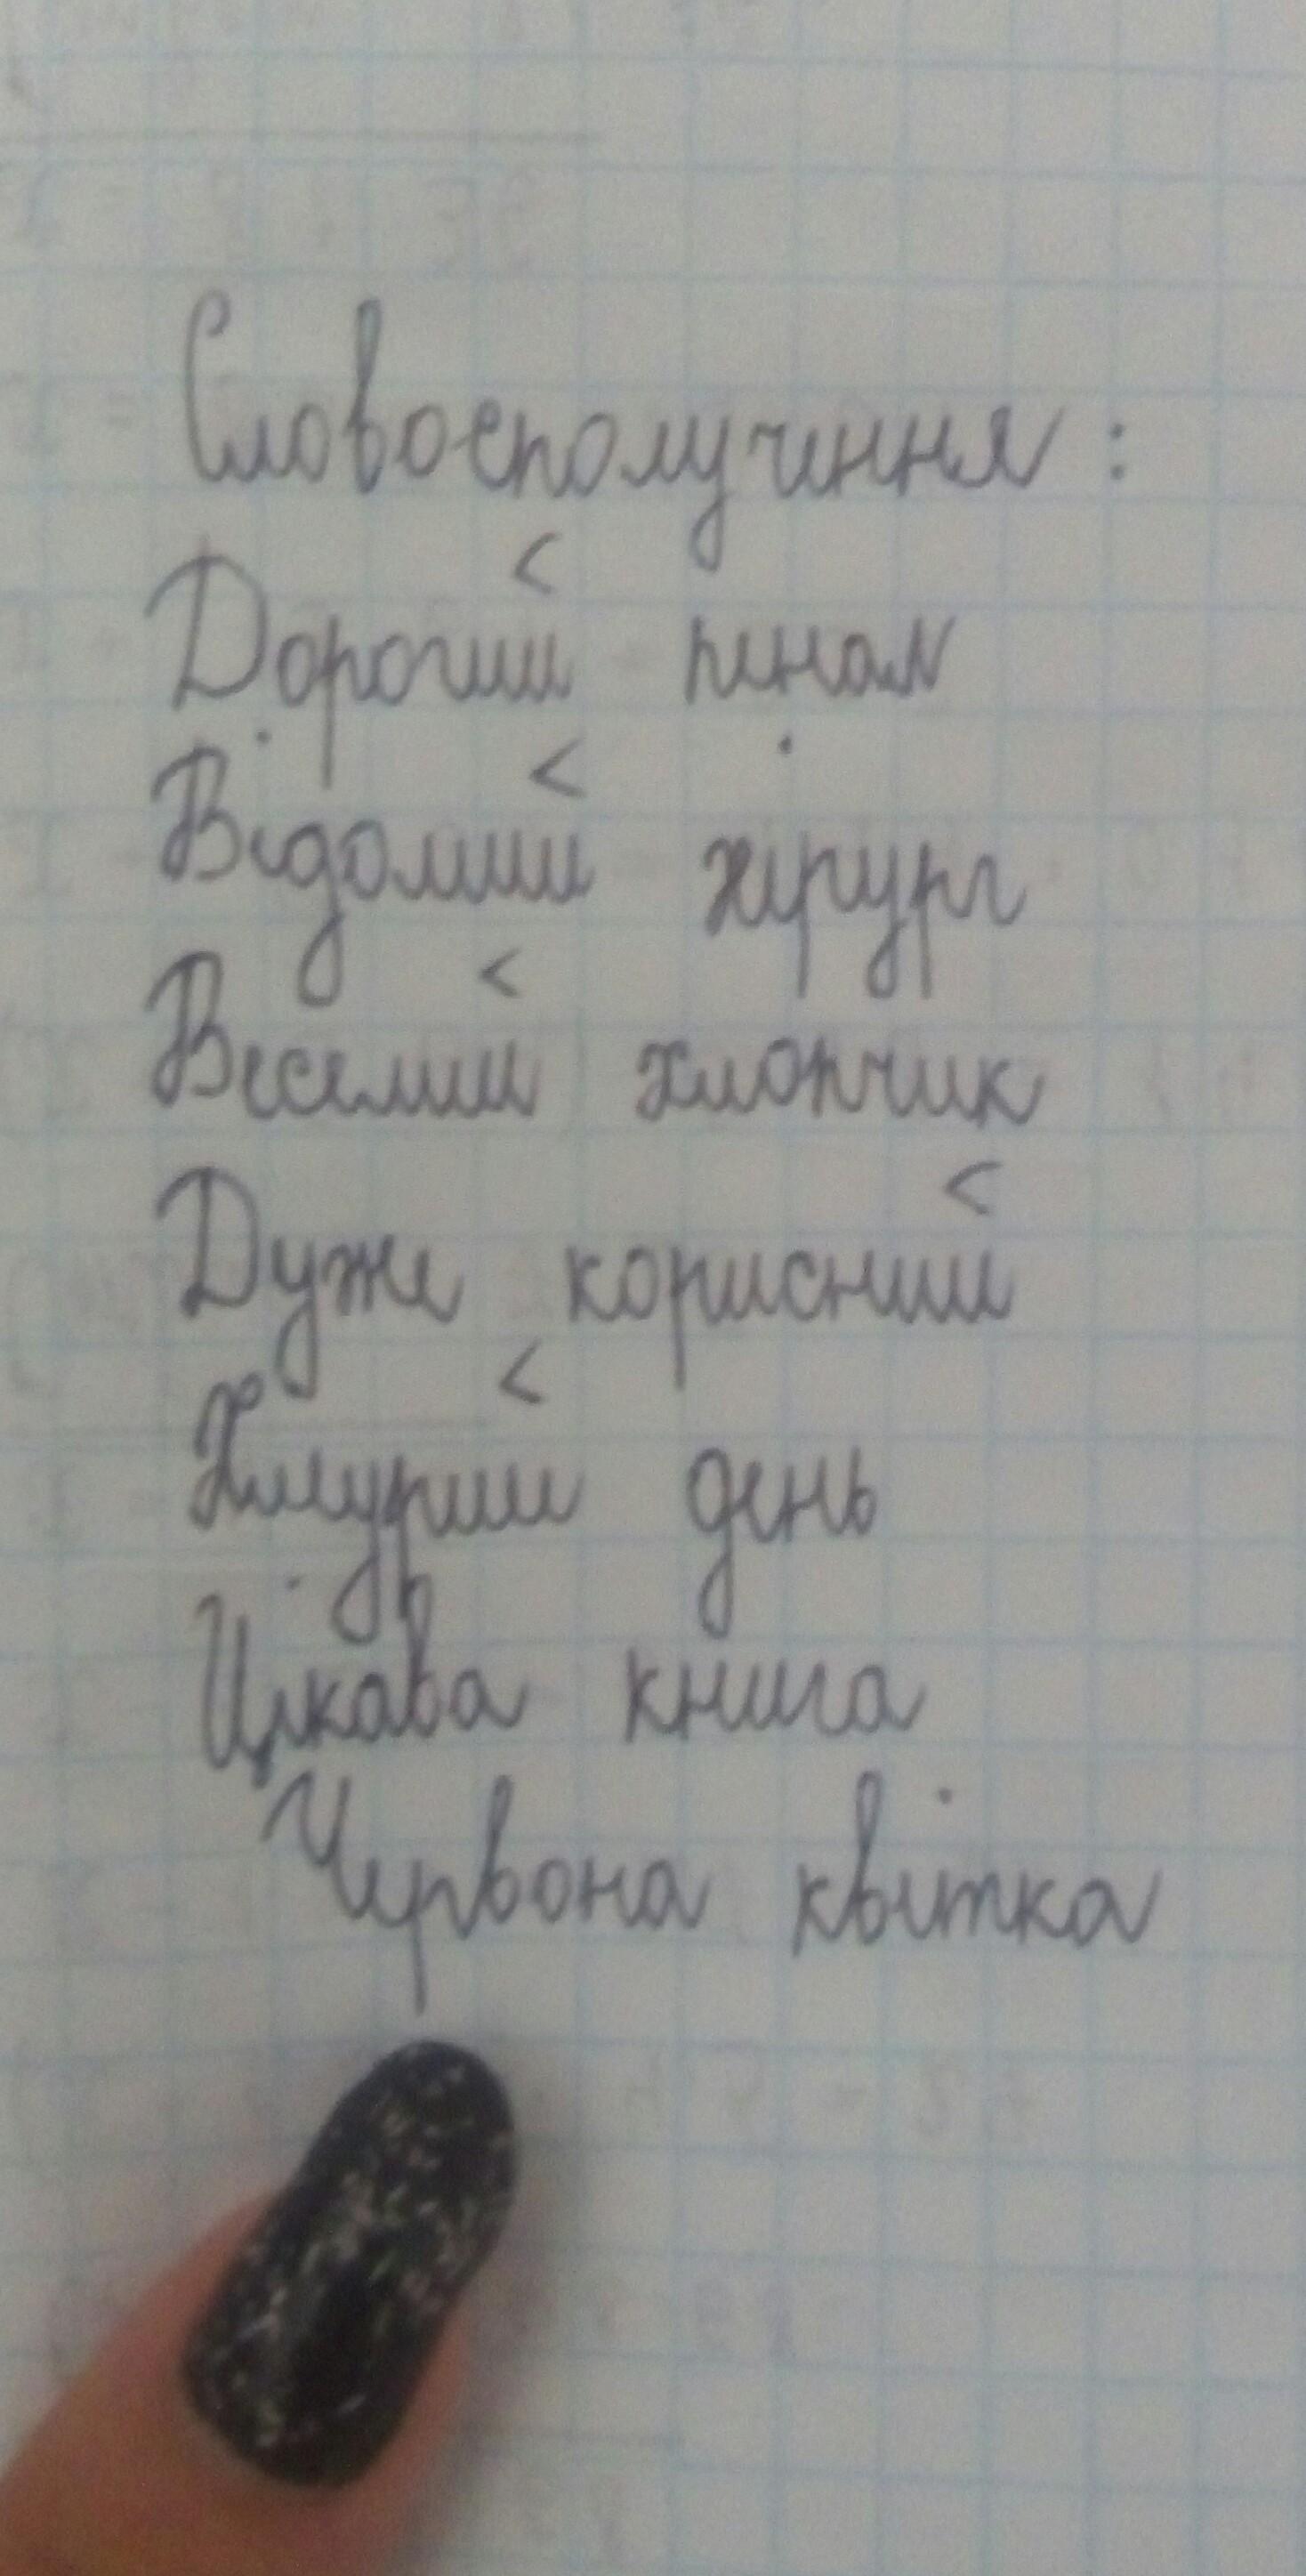 Словосполучення:
Дорогий пенал
Відомий хірург
Веселий хлопчик
Дуже корисний
Хмурий день
Цікава книга
Червона квітка